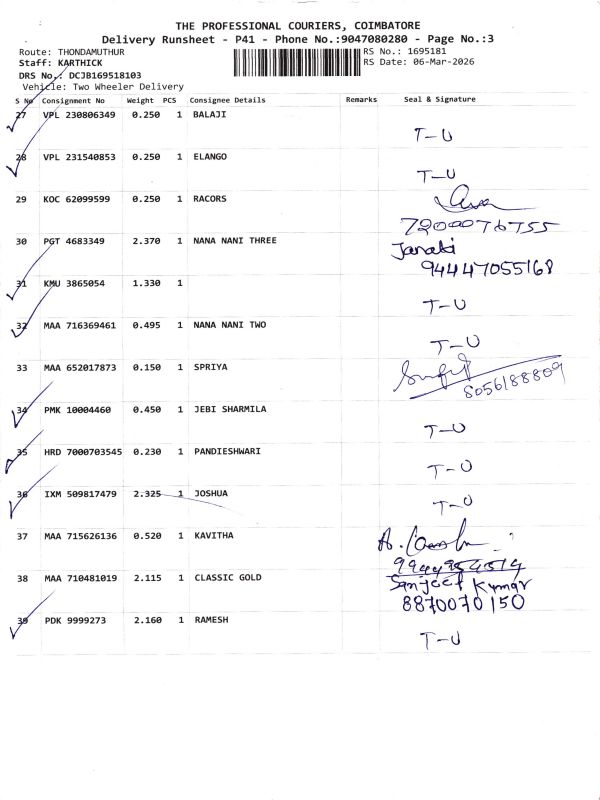 THE PROFESSIONAL COURIERS, COIMBATORE
Delivery Runsheet - P41 - Phone No.:9047080280 - Page No.:3
Route: THONDAMUTHUR
RS No.: 1695181
Staff: KARTHICK
RS Date: 06-Mar-2026
DRS No.: DCJB169518103
Vehicle: Two Wheeler Delivery
S No Consignment No Weight PCS Consignee Details Remarks Seal & Signature
27 VPL 230806349 0.250 1 BALAJI
T-U
28 VPL 231540853 0.250 1 ELANGO
T-U
29 KOC 62099599 0.250 1 RACORS
7200076755
30 PGT 4683349 2.370 1 NANA NANI THREE
Janaki
94447055168
31 KMU 3865054 1.330 1
T-U
32 MAA 716369461 0.495 1 NANA NANI TWO
T-U
33 MAA 652017873 0.150 1 SPRIYA
8056188809
34 PMK 10004460 0.450 1 JEBI SHARMILA
T-U
35 HRD 7000703545 0.230 1 PANDIESHWARI
T-U
36 IXM 509817479 2.325 1 JOSHUA
T-U
37 MAA 715626136 0.520 1 KAVITHA
38 MAA 710481019 2.115 1 CLASSIC GOLD
Sanjeef Kumar
8870070150
39 PDK 9999273 2.160 1 RAMESH
T-U